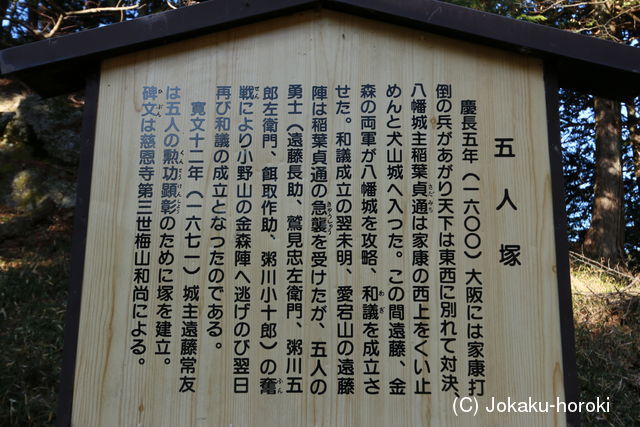 五人塚
慶長五年（一六〇〇）大阪には家康打
倒の兵があがり天下は東西に別れて対決、
八幡城主稲葉貞通は家康の西上をくい止
さだみち
めんと犬山城へ入った。この間遠藤、金
森の両軍が八幡城を攻略、和議を成立さ
わぎ
せた。和議成立の翌未明、愛宕山の遠藤
陣は稲葉貞通の急襲を受けたが、五人の
きゅうしゅう
勇士（遠藤長助、鷲見忠左衛門、粥川五
郎左衛門、餌取作助、粥川小十郎）の奮
ふん
戦により小野山の金森陣へ逃げのび翌日
せん
再び和議の成立となったのである。
寛文十二年（一六七一）城主遠藤常友
は五人の勲功顕彰のために塚を建立。
くんこうけんしょう
碑文は慈恩寺第三世梅山和尚による。
ひぶん
(C) Jokaku-horoki